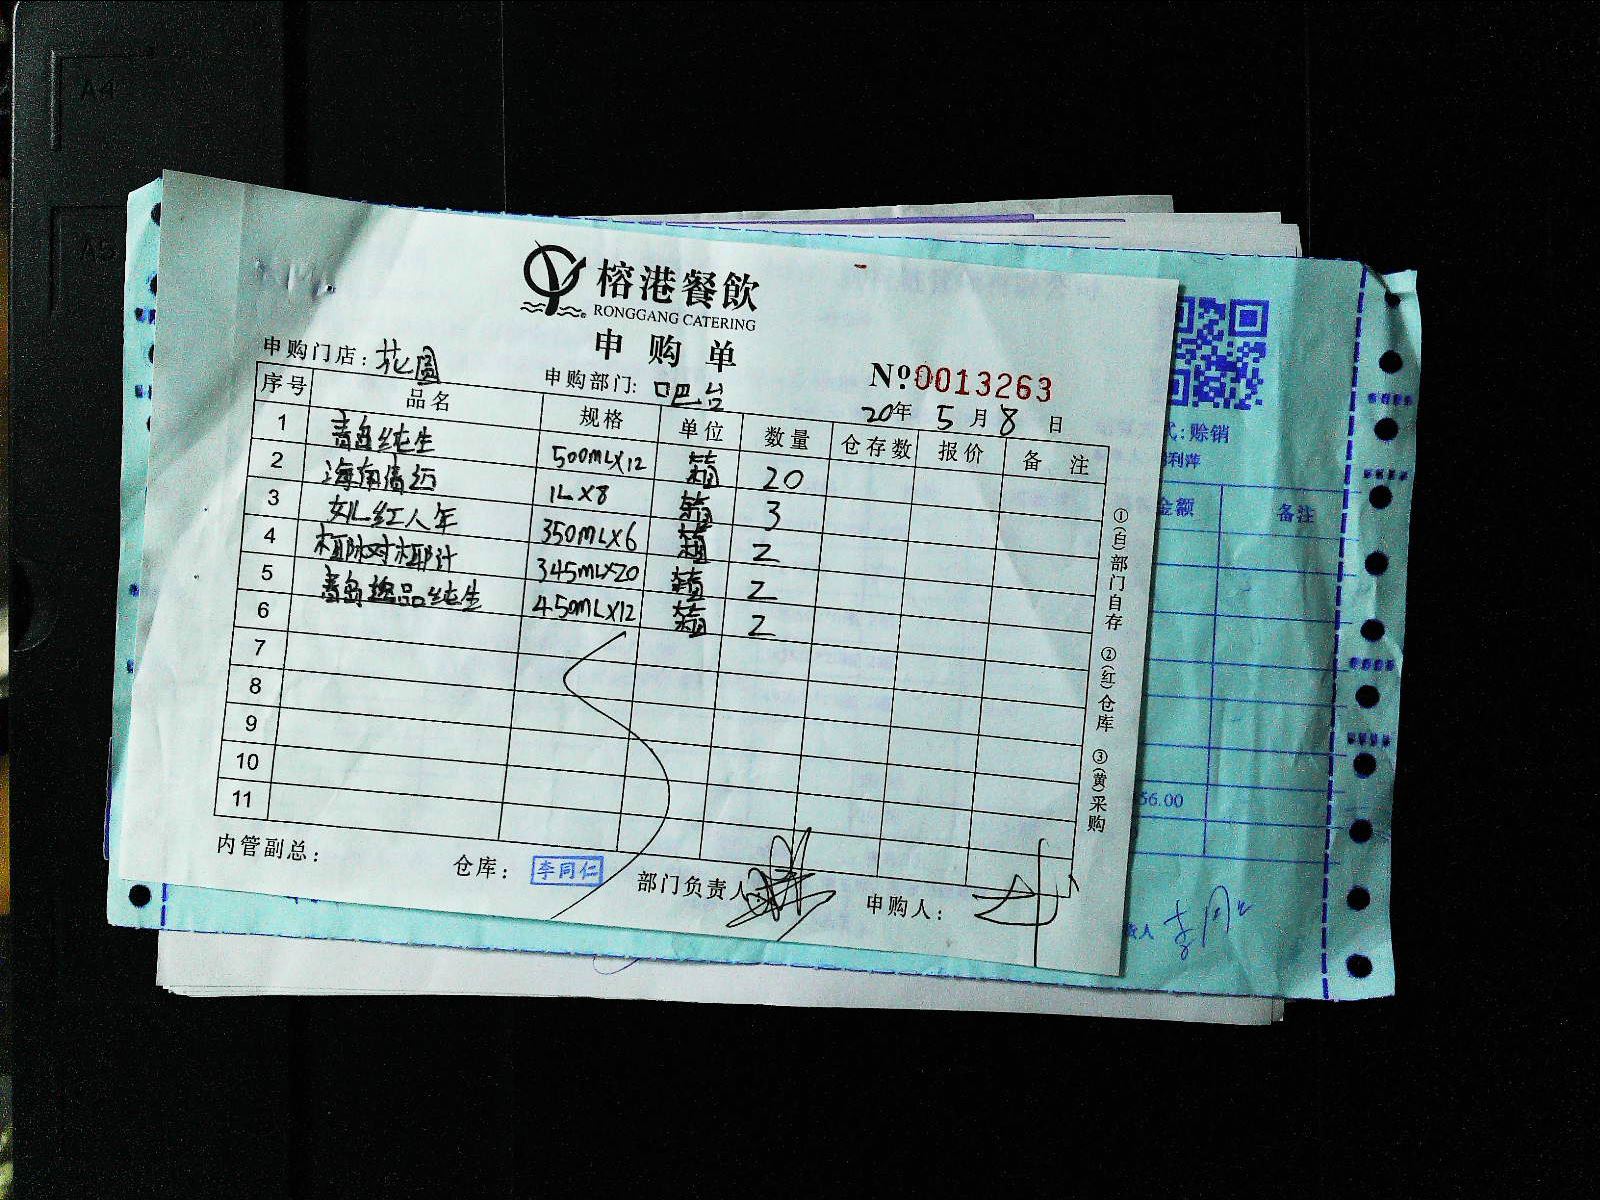 A4
A5
榕港餐飲
RONGGANG CATERING
申购单
申购门店: 花园
申购部门: 吧台
№0013263
20年 5月 8日
序号 品名 规格 单位 数量 仓存数 报价 备注
1 青岛纯生 500ML×12 箱 20
2 海南清 1L×8 箱 3
3 女儿红八年 350ML×6 箱 2
4 椰脉对椰汁 345ML×20 箱 2
5 青岛逸品纯生 450ML×12 箱 2
6
7
8
9
10
11
①(白)部门自存 ②(红)仓库 ③(黄)采购
内管副总:
仓库: 李同仁
部门负责人:
申购人:
式:赊销
利萍
金额 备注
56.00
责人 李同仁